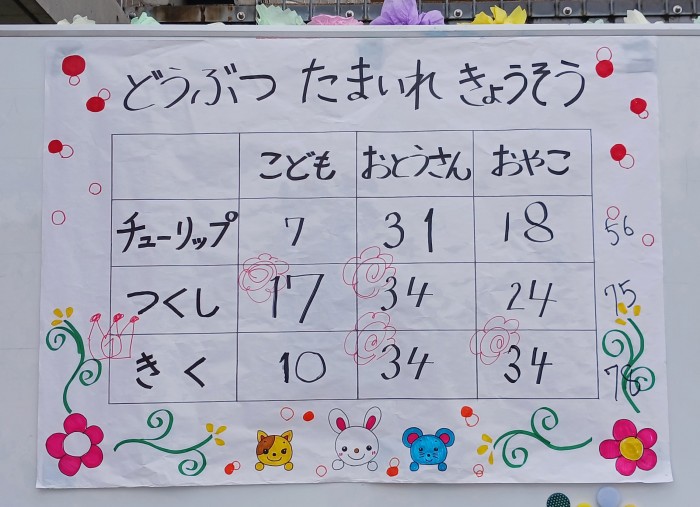 どうぶつ たまいれ きょうそう
こども おとうさん おやこ
チューリップ 7 31 18 56
つくし 17 34 24 75
きく 10 34 34 78